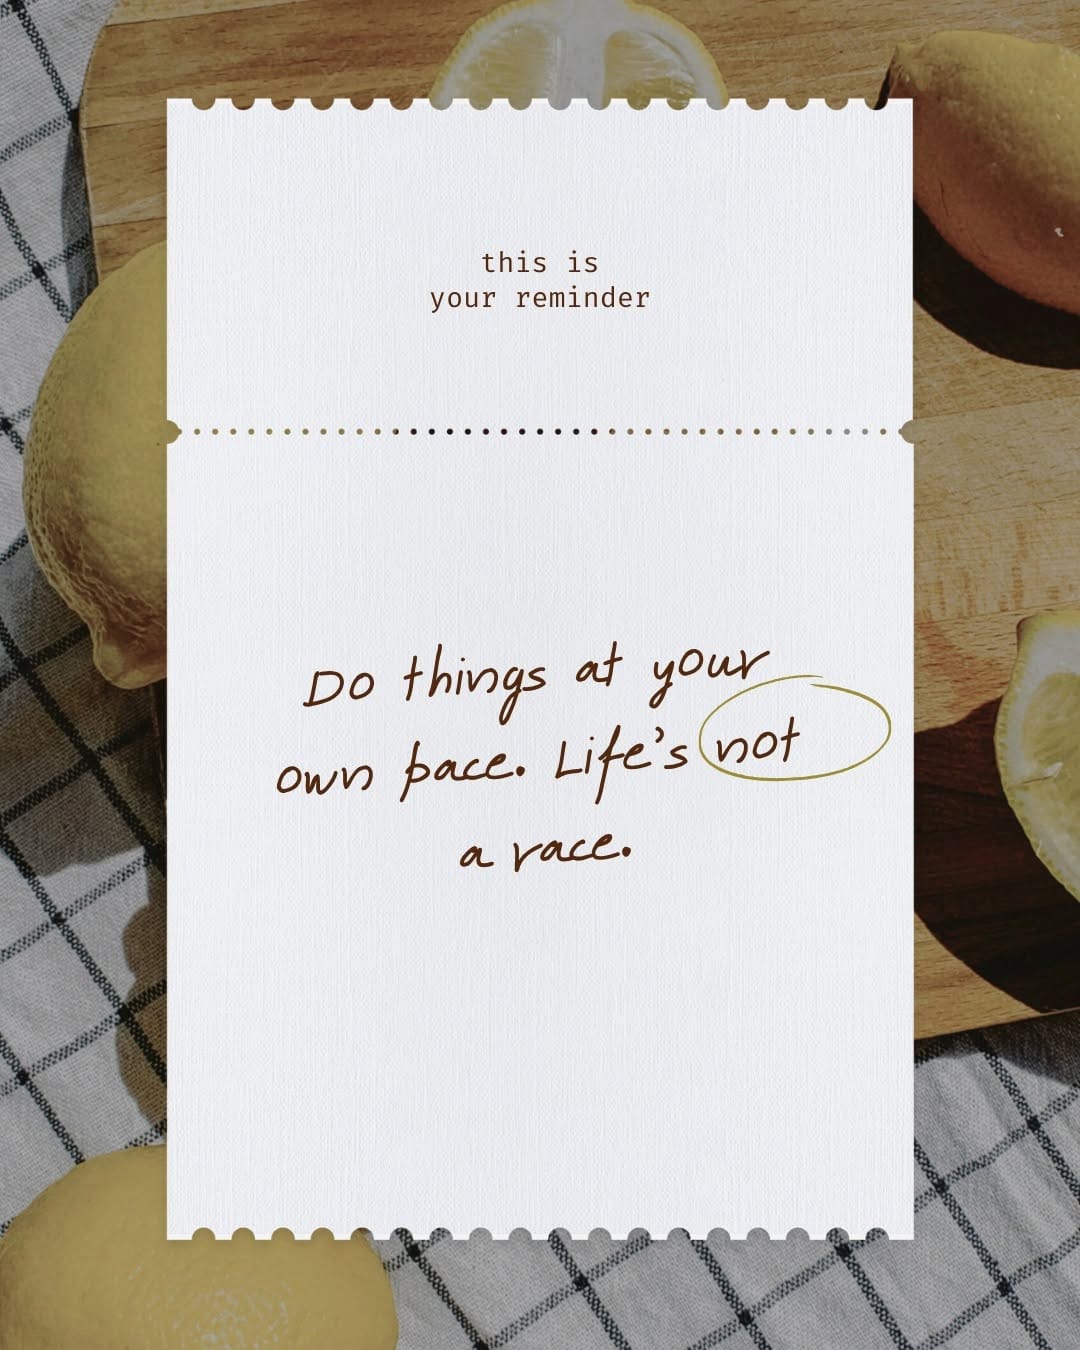 this is
your reminder
Do things at your
own pace. Life's not
a race.